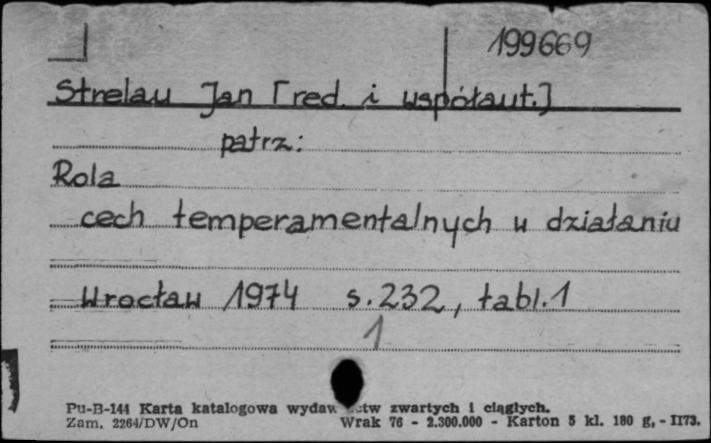 199669
Strelau Jan [red. i współaut.]
patrz:
Rola
cech temperamentalnych w działaniu
Wrocław 1974 s. 232, tabl. 1
1
Pu-B-144 Karta katalogowa wydaw ctw zwartych i ciągłych.
Zam. 2264/DW/On Wrak 76 - 2.300.000 - Karton 5 kl. 180 g, - II73.